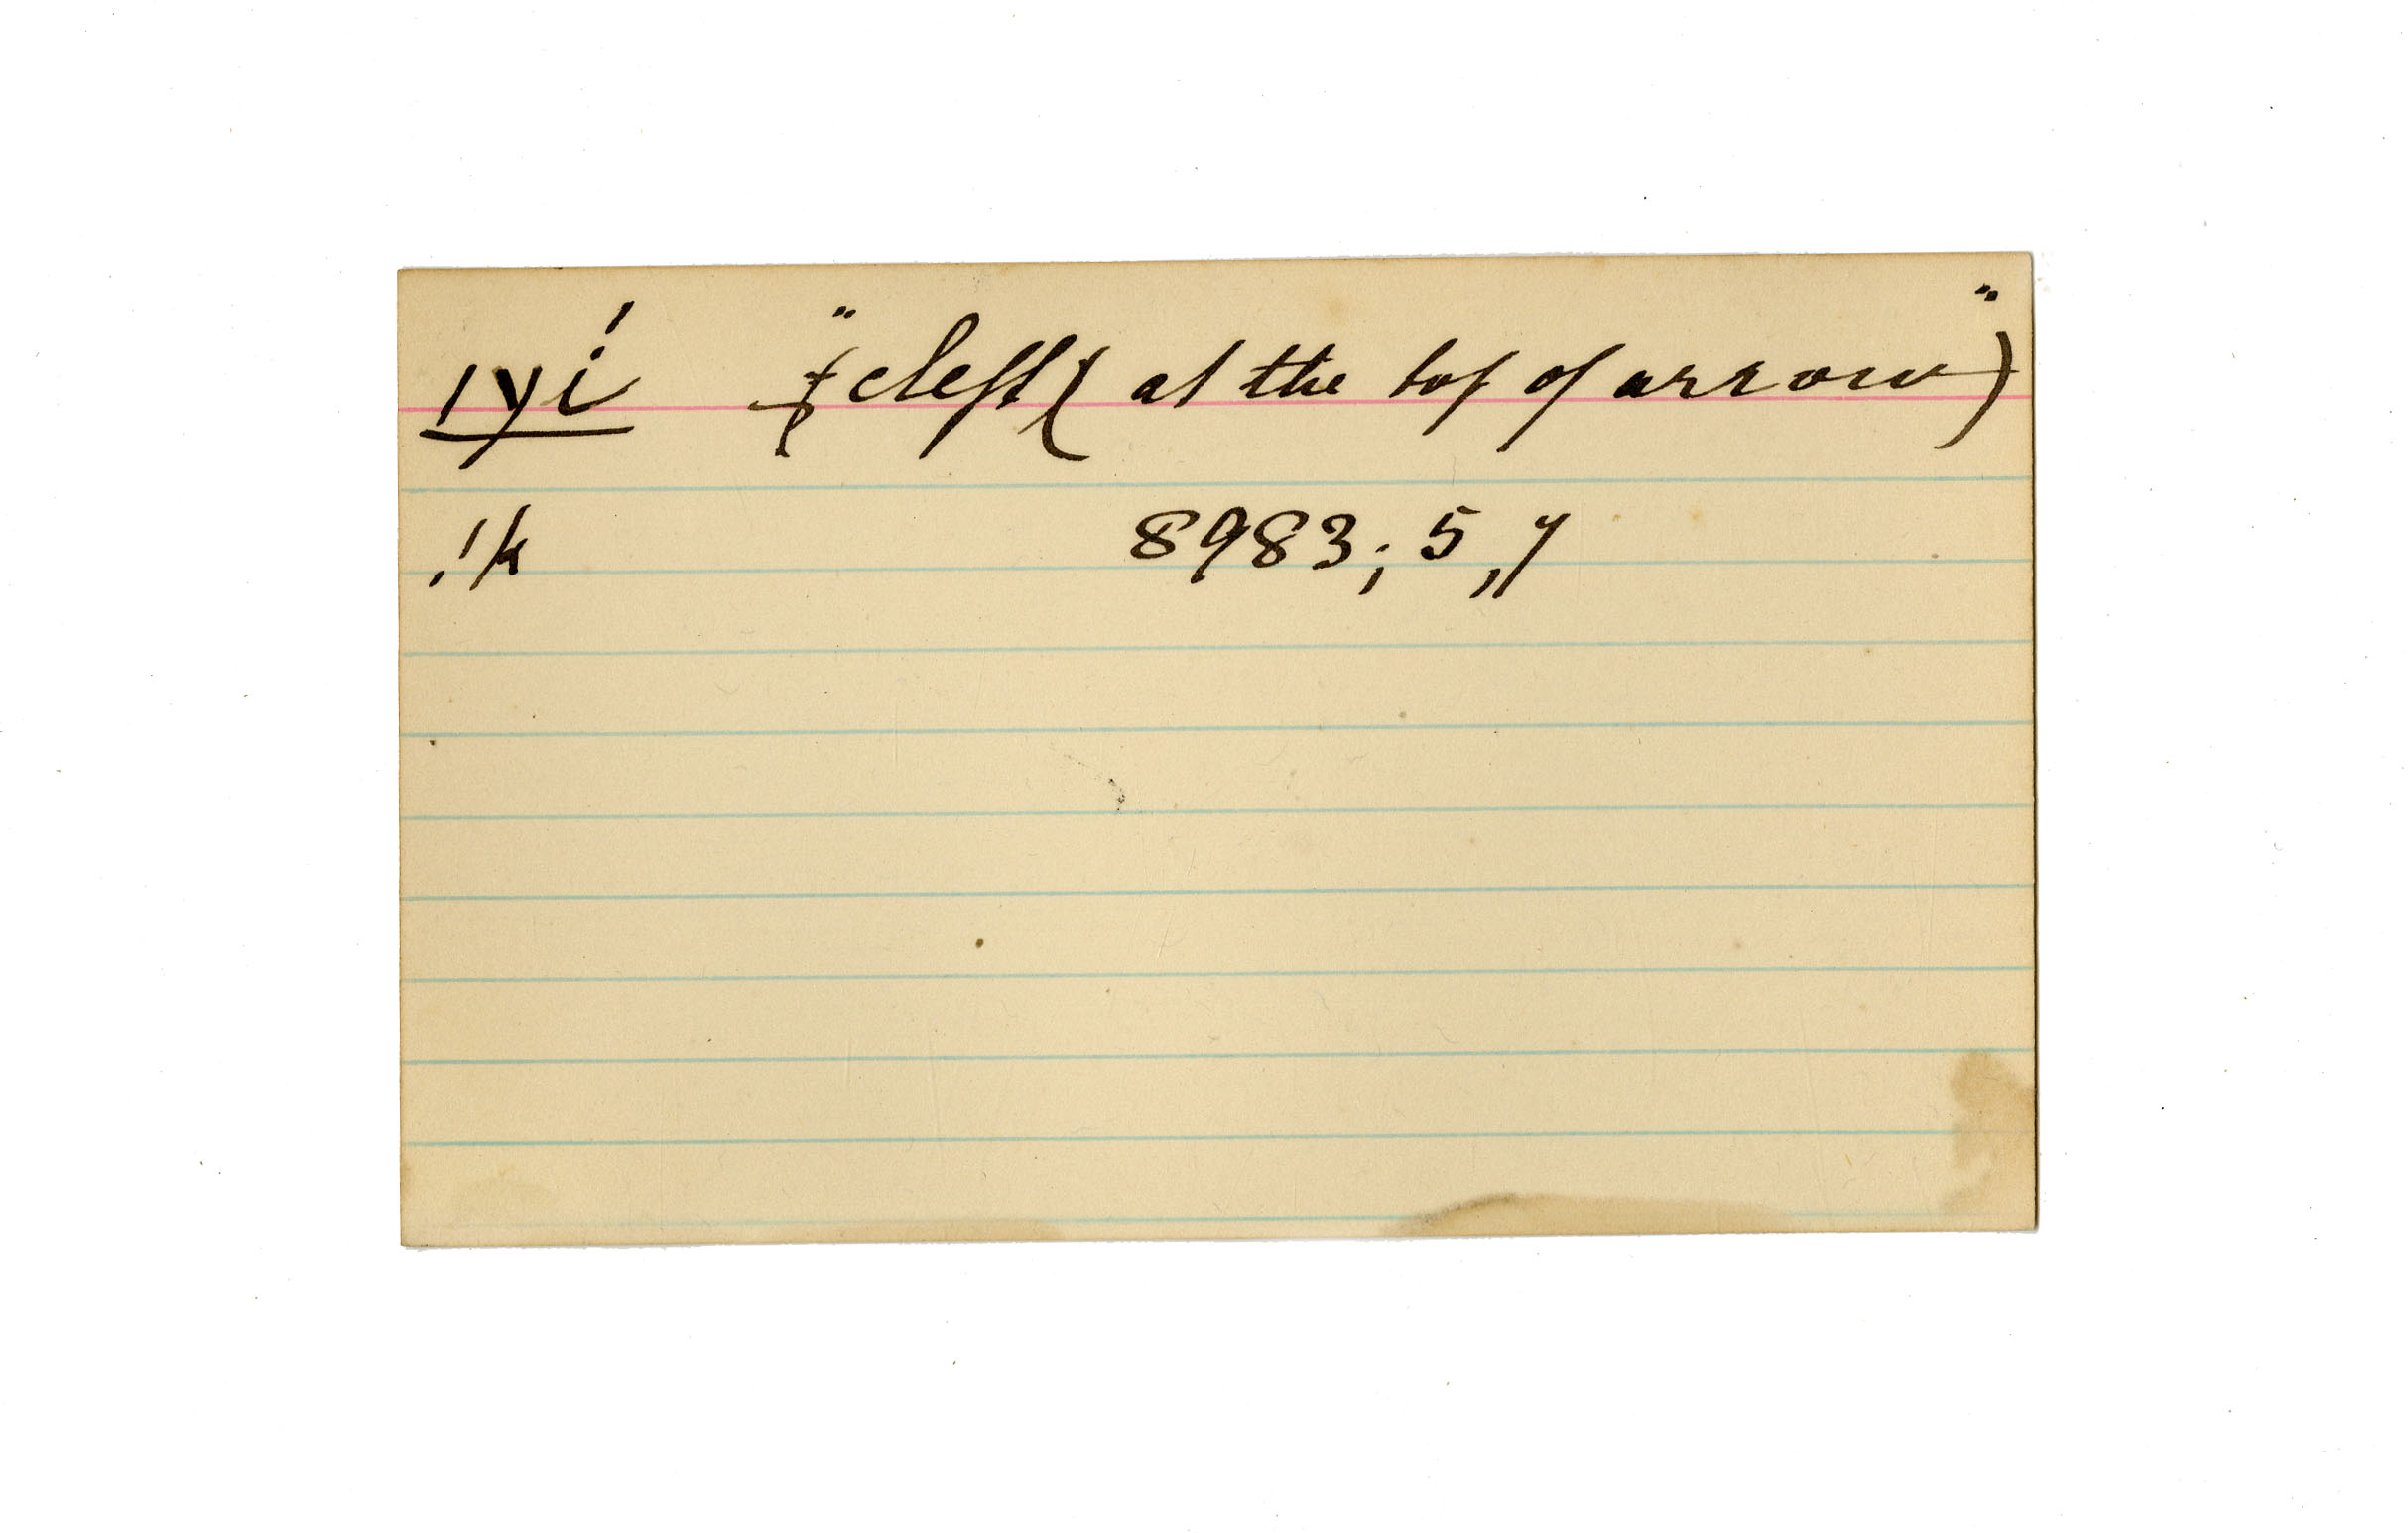 ıyí " cleft (at the top of arrow) "
!k 8983; 5, 7